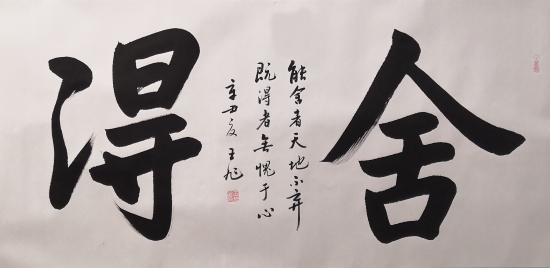 舍得
能舍者天地不弃
既得者無愧于心
辛丑夏 王旭